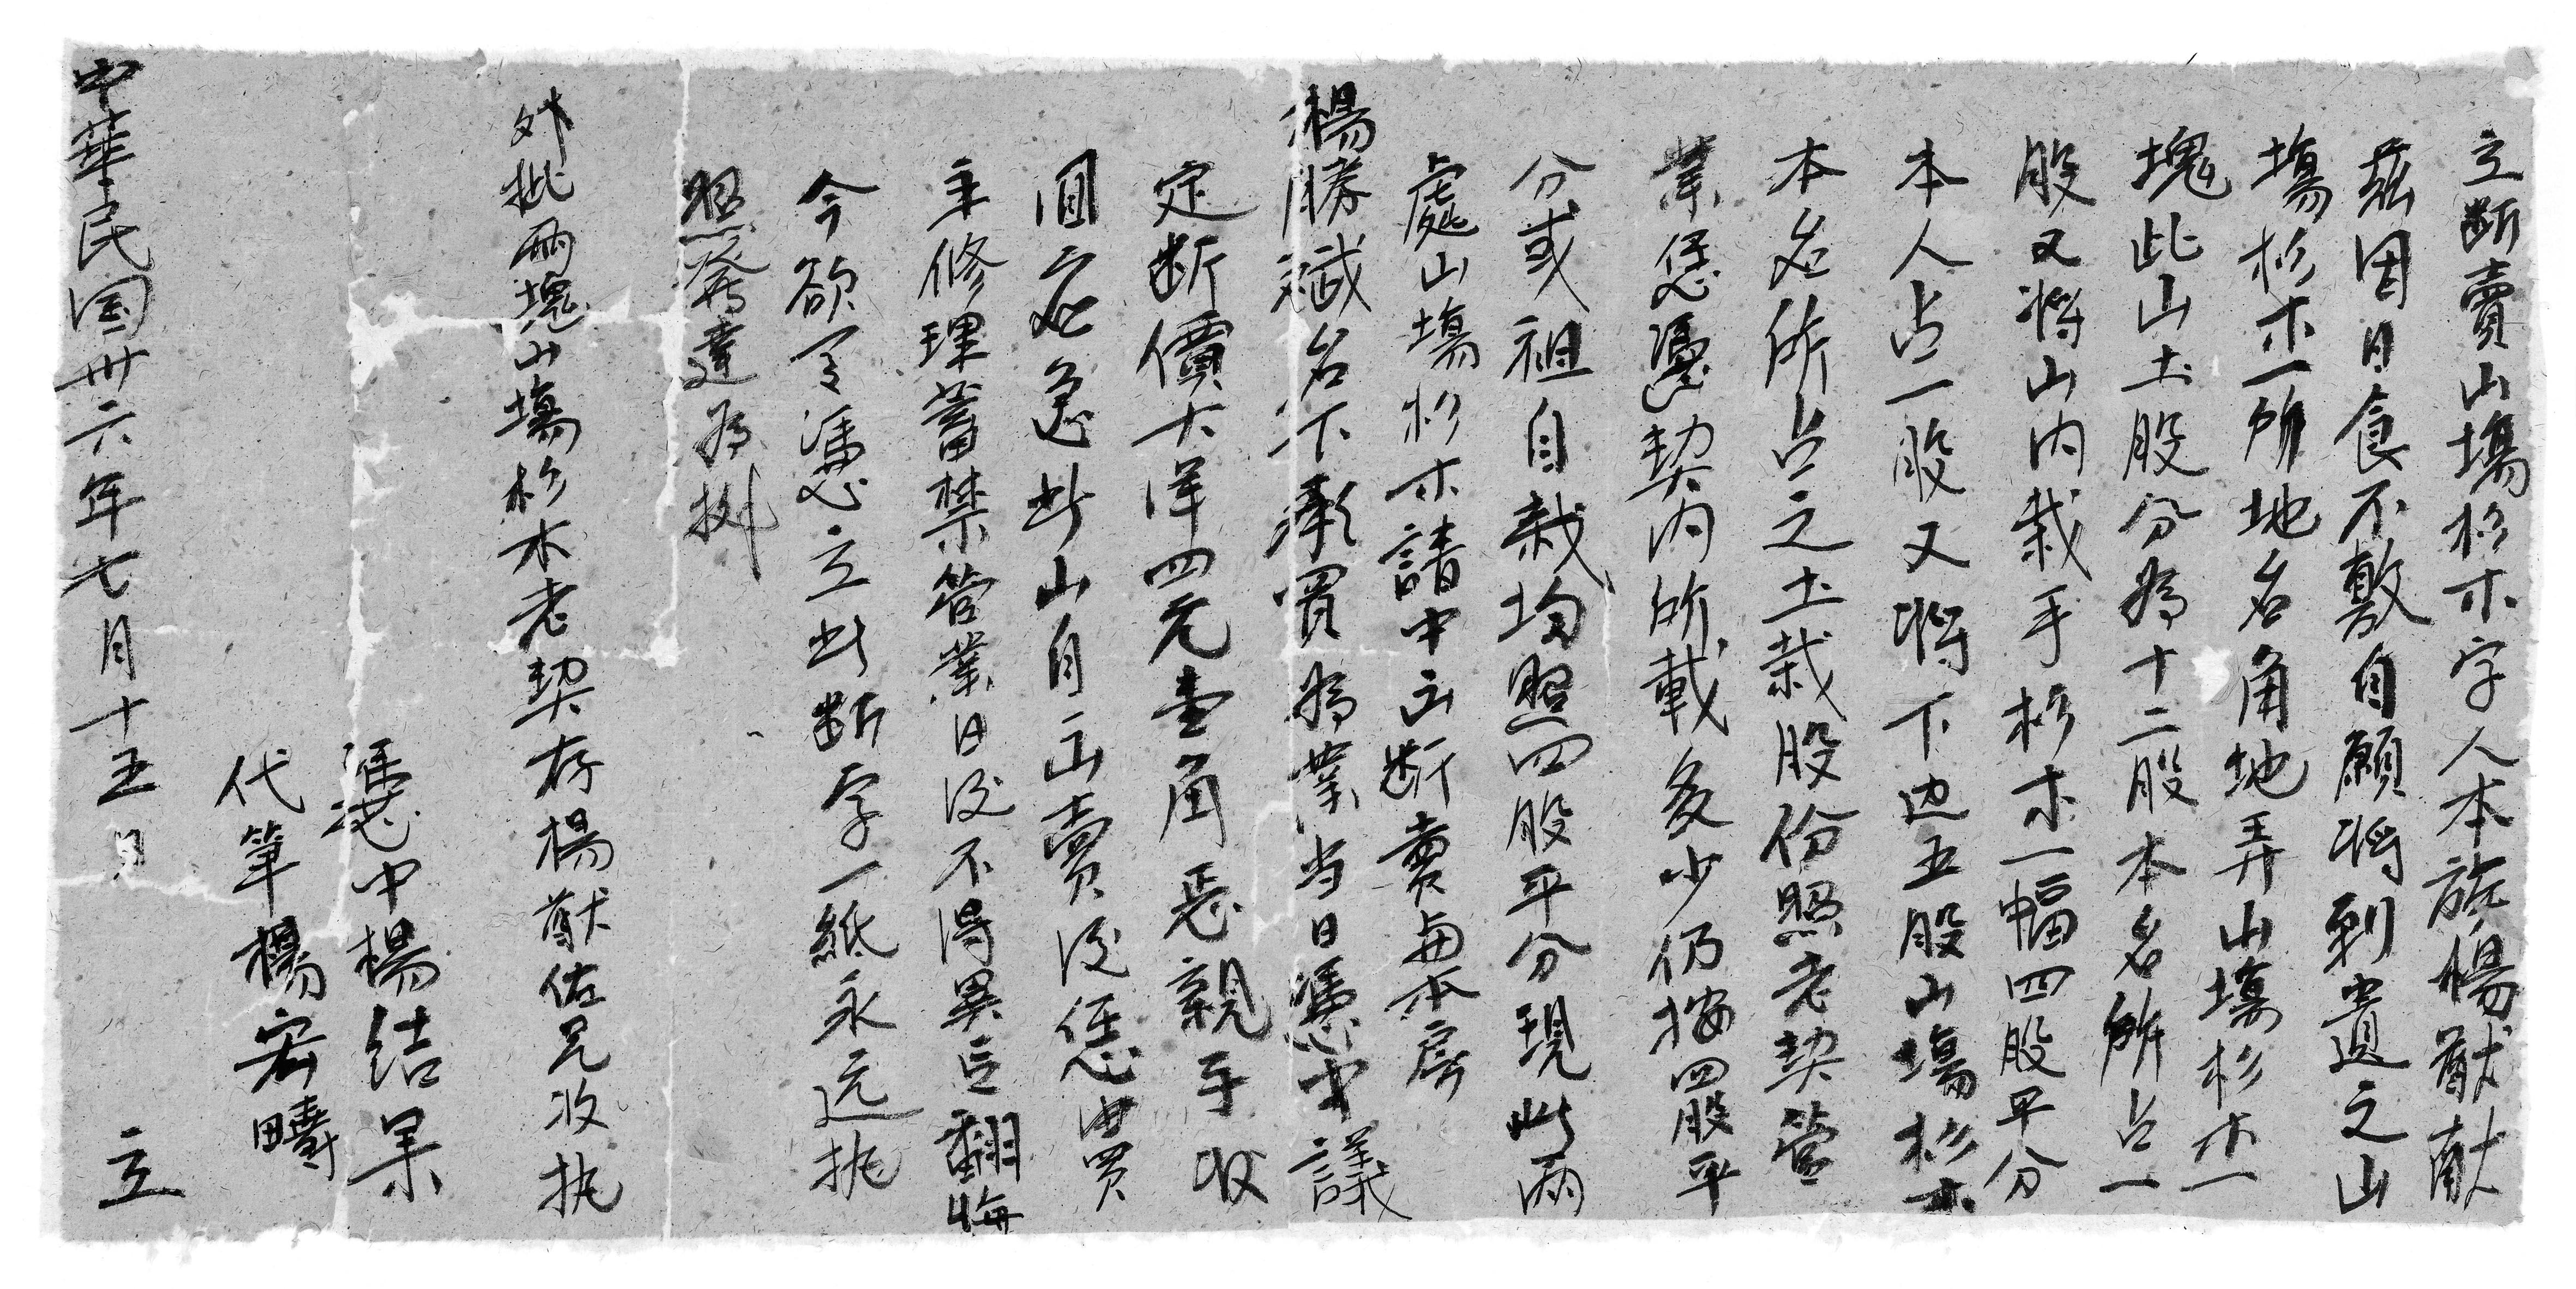 立断賣山塲杉木字人本族楊猷献
茲因日食不敷自願将到遺之山
塲杉木一所地名角地弄山塲杉木一
塊此山土股分為十二股本名所占一
股又将山内栽手杉木一幅四股平分
本人占一股又将下边五股山塲杉木
本名所占之土栽股份照老契管
業恁憑契内所載多少仍按四股平
分或祖自栽均照四股平分現此兩
處山塲杉木請中立断賣与本房
楊勝斌名下承買為業当日憑中議
定断價大洋四元壹角恁親手收
回应急此山自立賣後恁由買
主修理蓄禁管業日後不得異言翻悔
今欲有憑立此断字一紙永远执
照發達為据
外批兩塊山塲杉木老契存楊猷佐兄收执
憑中楊结果
代筆楊宏疇
中華民国卅六年七月十五日 立